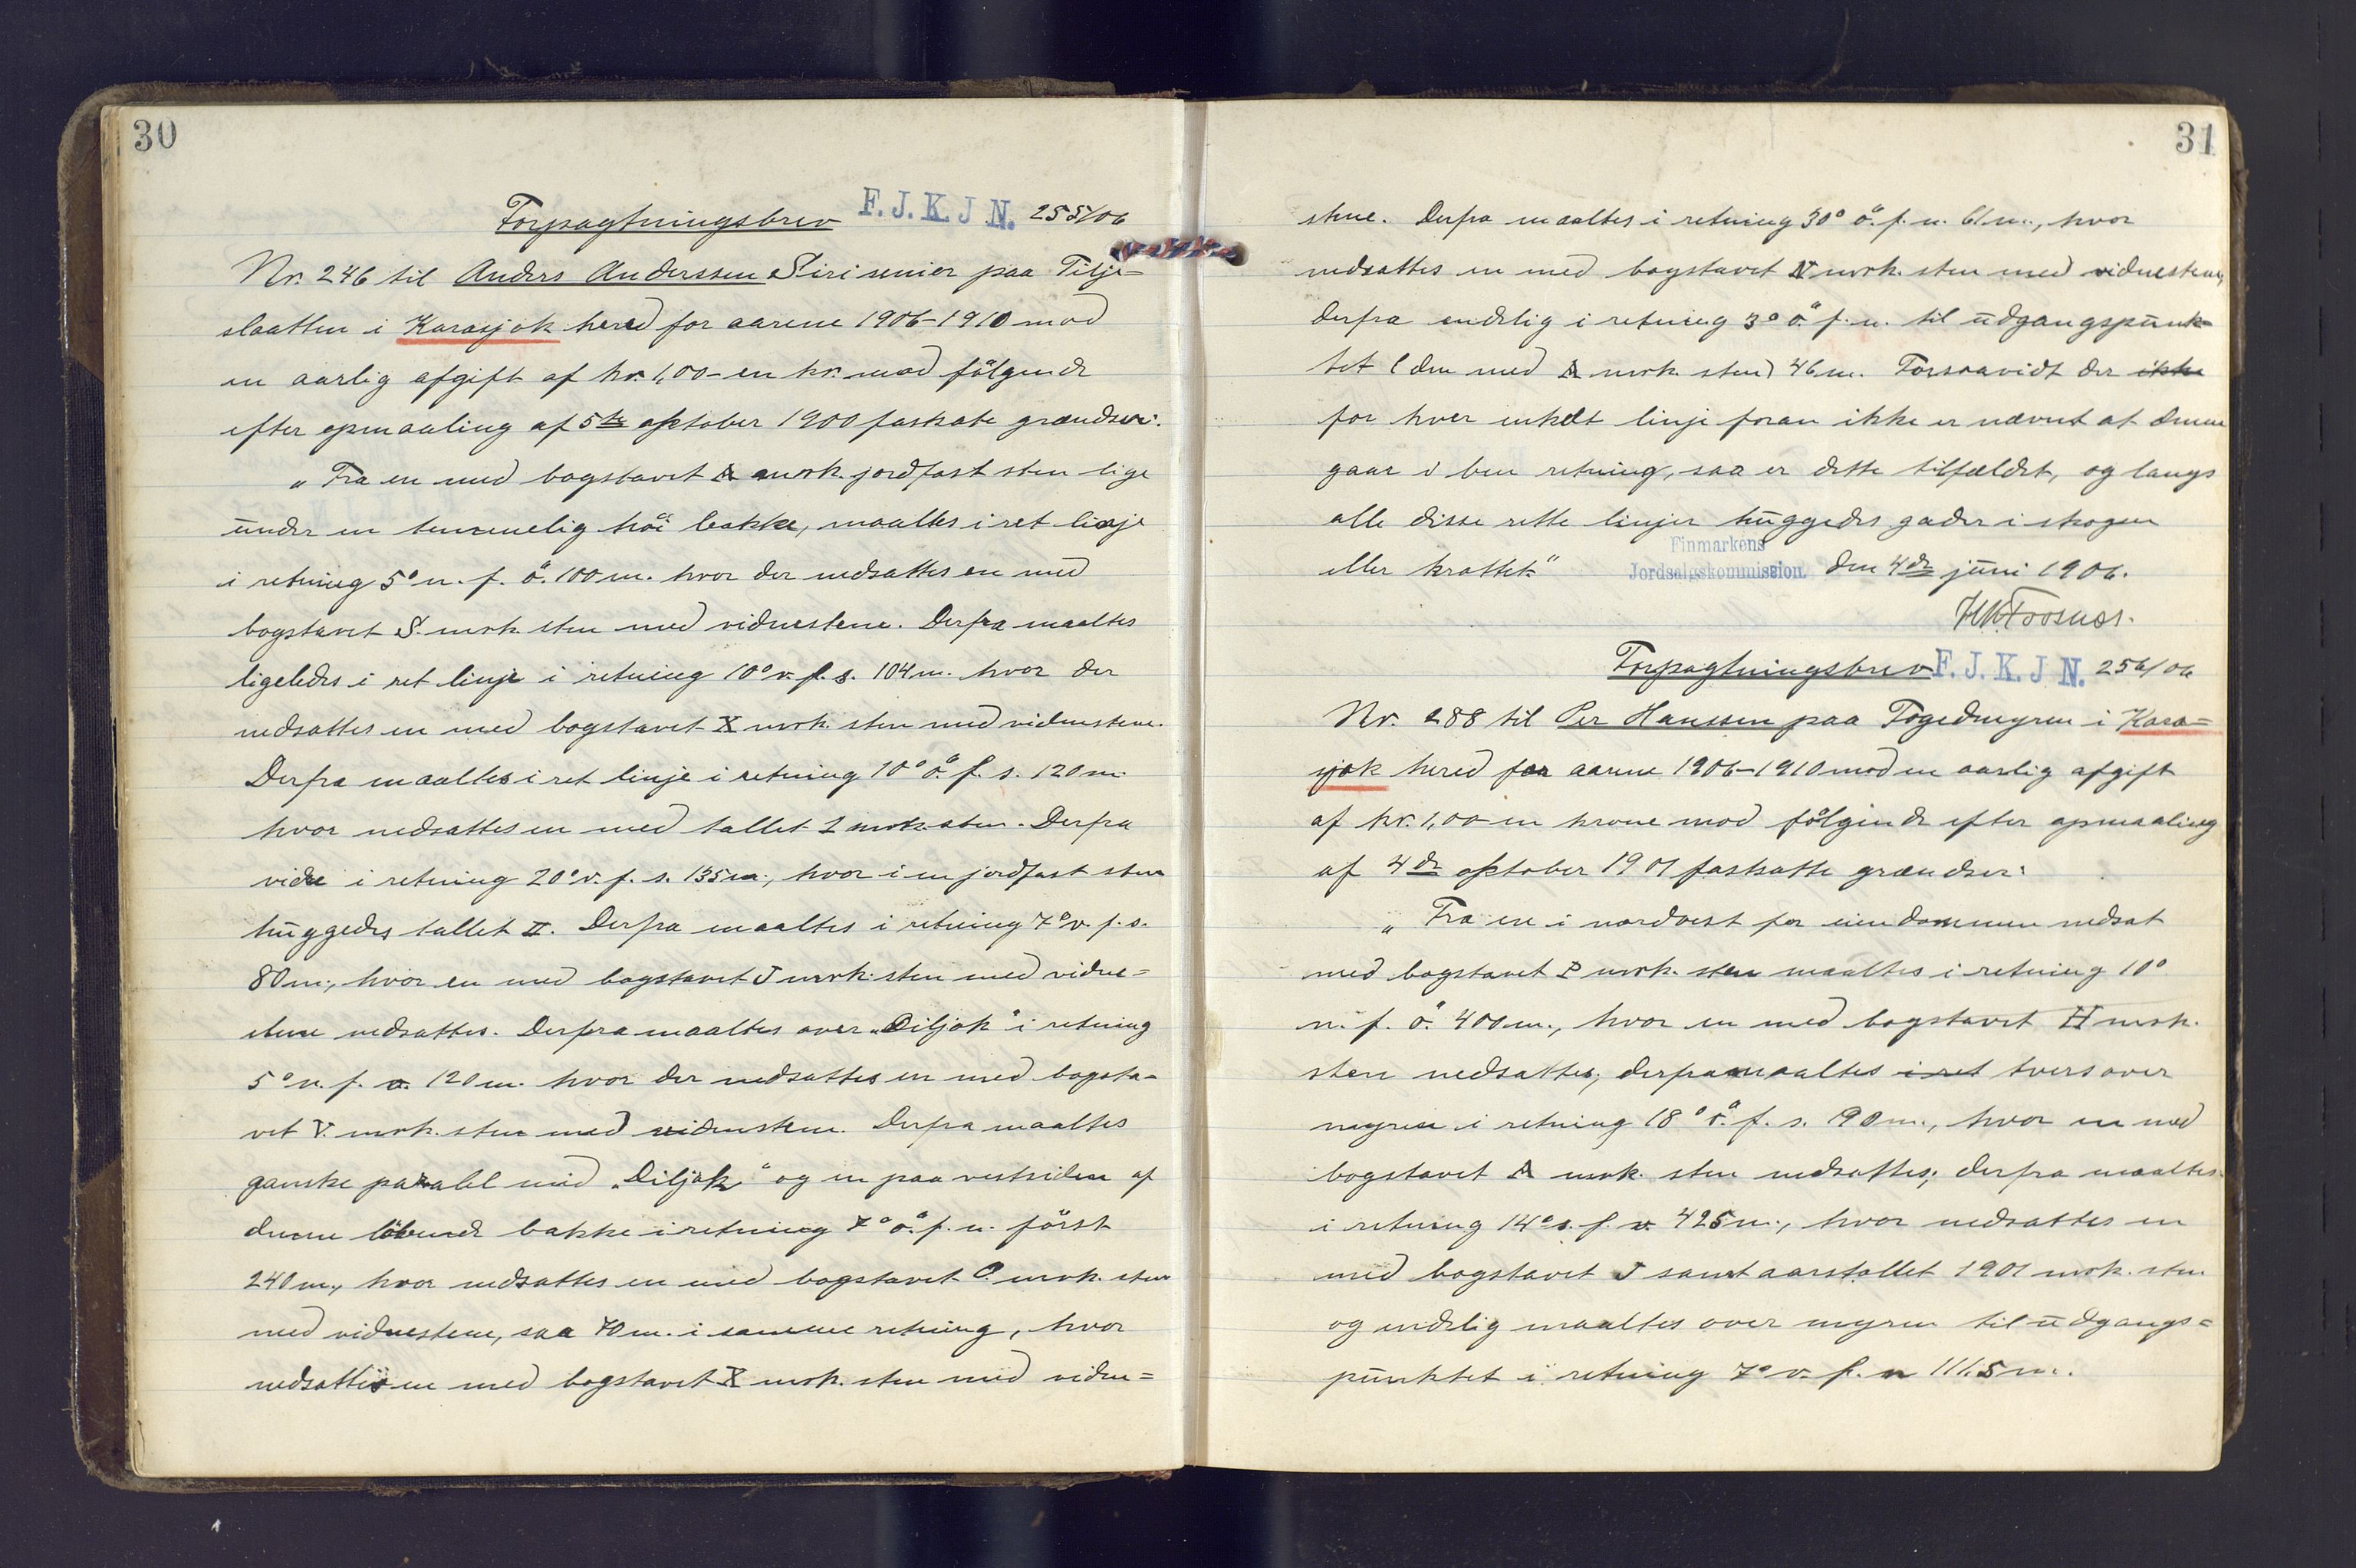 30
Forpagtningsbrev F. J. K. J N. 255/06
Nr. 246 til Anders Anderssen Siri senior paa Tilje-
slaatten i Karasjok hered for aarene 1906-1910 mod
en aarlig afgift af kr. 1,00 - en kr. mod følgende
efter opmaaling af 5te oktober 1900 faskate grændser:
"Fra en med bogstavet A mrk. jordfast sten lige
under en temmelig høi bakke, maaltes i ret linje
i retning 5° n. f. ø. 100 m. hvor der nedsattes en med
bogstavet S. mrk. sten med vidnestene. Derfra maaltes
ligeledes i ret linje i retning 10° v. f. s. 104 m. hvor der
nedsattes en med bogstavet X mrk. sten med vidnestene.
Derfra maaltes i ret linje i retning 10° ø. f. s. 120 m.
hvor nedsattes en med tallet 1 mrk. sten. Derfra
videre i retning 20° v. f. s. 135 m., hvor i en jordfast sten
huggedes tallet II. Derfra maaltes i retning 7° v. f. s.
80 m., hvor en med bogstavet J mrk. sten med vidne-
stene nedsattes. Derfra maaltes over "Diljok" i retning
5° n. f. v. 120 m. hvor der nedsattes en med bogsta-
vet V. mrk. sten med vidnestene. Derfra maaltes
ganske paralel med "Diljok" og en paa vestsiden af
denne løbende bakke i retning 7° ø. f. n. først
240 m., hvor nedsattes en med bogstavet P. mrk. sten
med vidnestene, saa 70 m. i samme retning, hvor
nedsattes en med bogstavet X mrk. sten med vidne-
31
stene. Derfra maaltes i retning 30° ø. f. n. 61 m., hvor
nedsattes en med bogstavet N mrk. sten med vidnestene,
derfra endelig i retning 3° ø. f. n. til udgangspunk-
tet (den med A mrk. sten) 46 m. Forsaavidt der ikke
for hver enkelt linje foran ikke er nævnt at denne
gaar i ben retning, saa er dette tilfældet, og langs
alle disse rette linjer huggedes gader i skogen
eller krattet." Finmarkens Jordsalgskommission. den 4de juni 1906.
Forpagtningsbrev F. J. K. J N. 256/06
Nr. 288 til Per Hanssen paa Fogedmyren i Kara-
sjok hered for aarene 1906-1910 mod en aarlig afgift
af kr. 1,00 en krone mod følgende efter opmaaling
af 4de oktober 1901 faskatte grændser:
"Fra en i nordvest for eiendommen nedsat
med bogstavet P mrk. sten maaltes i retning 10°
n. f. ø. 400 m., hvor en med bogstavet H mrk.
sten nedsattes; derfra maaltes i ret tvers over
myren i retning 18° ø. f. s. 190 m., hvor en med
bogstavet A mrk. sten nedsattes; derfra maaltes
i retning 14° s. f. v. 425 m., hvor nedsattes en
med bogstavet J samt aarstallet 1901 mrk. sten
og endelig maaltes over myren til udgangs-
punktet i retning 7° v. f. n 111.5 m.